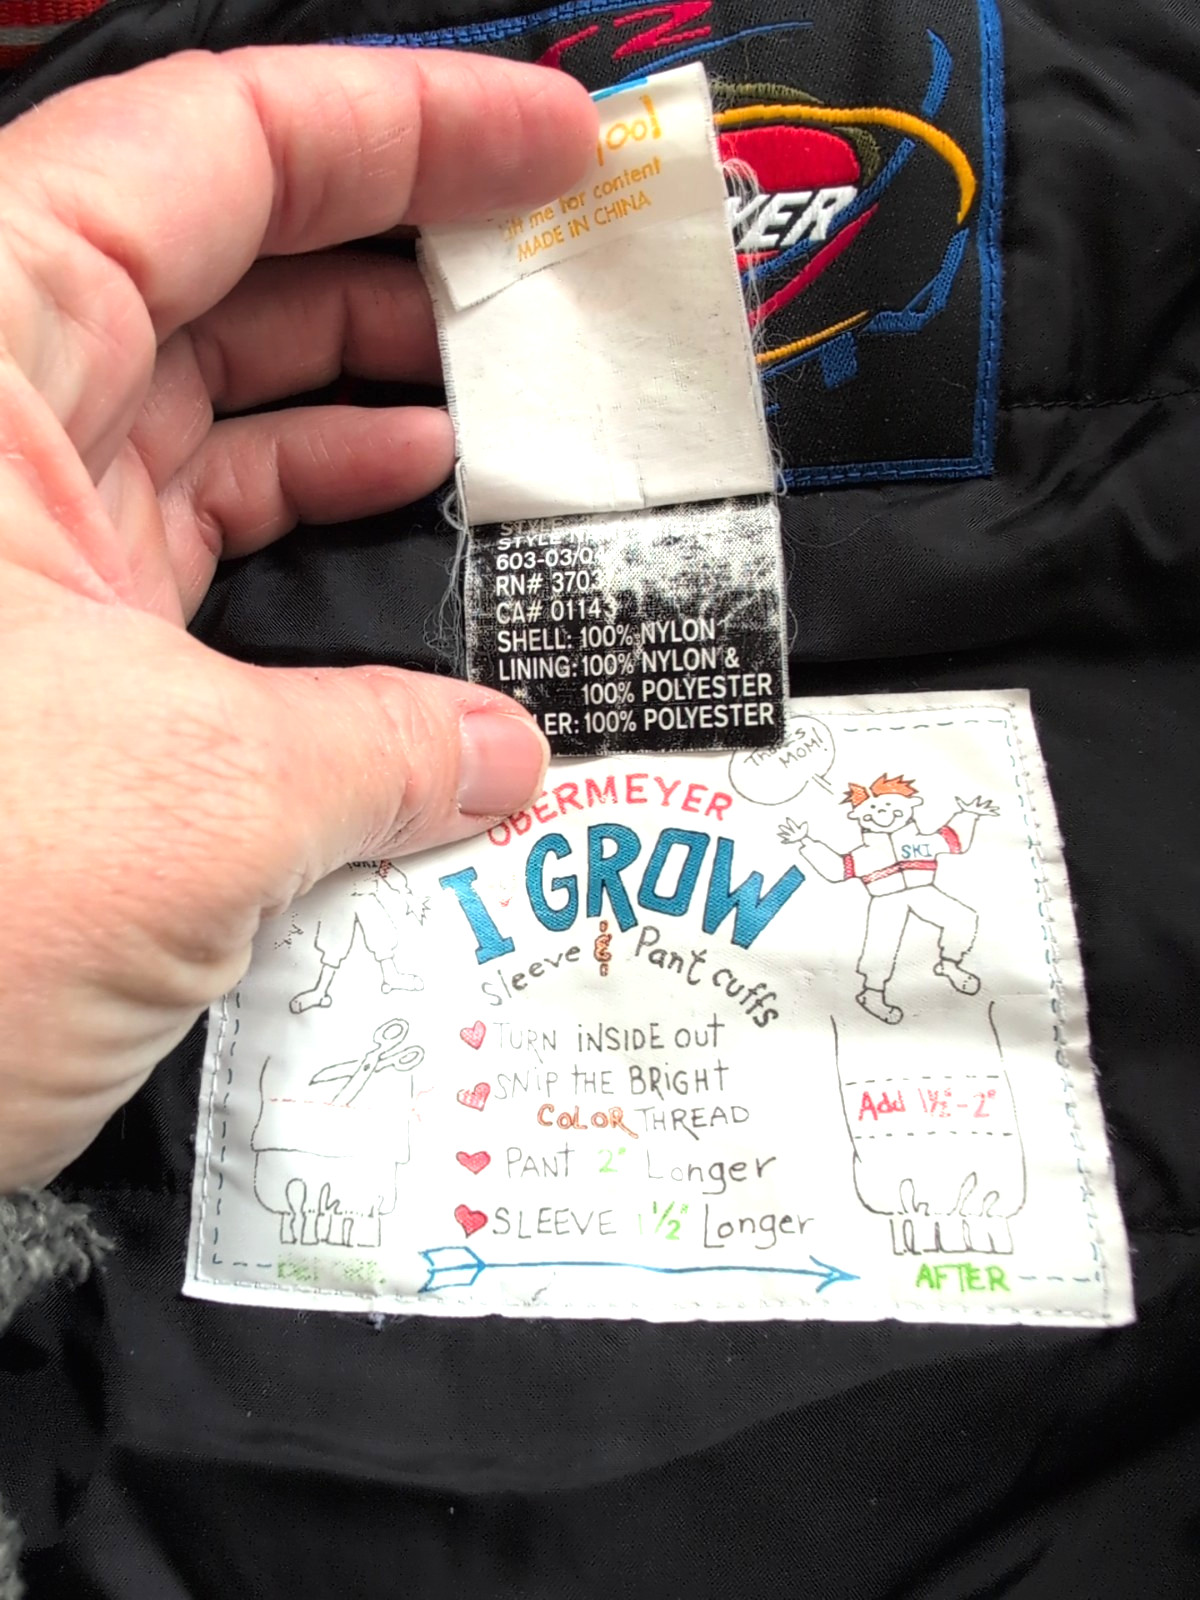 too!
me for content
MADE iN CHINA
STYLE
STYLE
603-03/04
RN# 3703
CA# 01143
SHELL: 100% NYLON
LINING: 100% NYLON &
100% POLYESTER
LER: 100% POLYESTER
THANKS
MOM!
OBERMEYER
I GROW
Sleeve & Pant cuffs
SKI
TURN iNSIDE OUT
SNIP THE BRIGHT
COLOR THREAD
PANT 2" Longer
SLEEVE 1½" Longer
Add 1½"-2"
AFTER